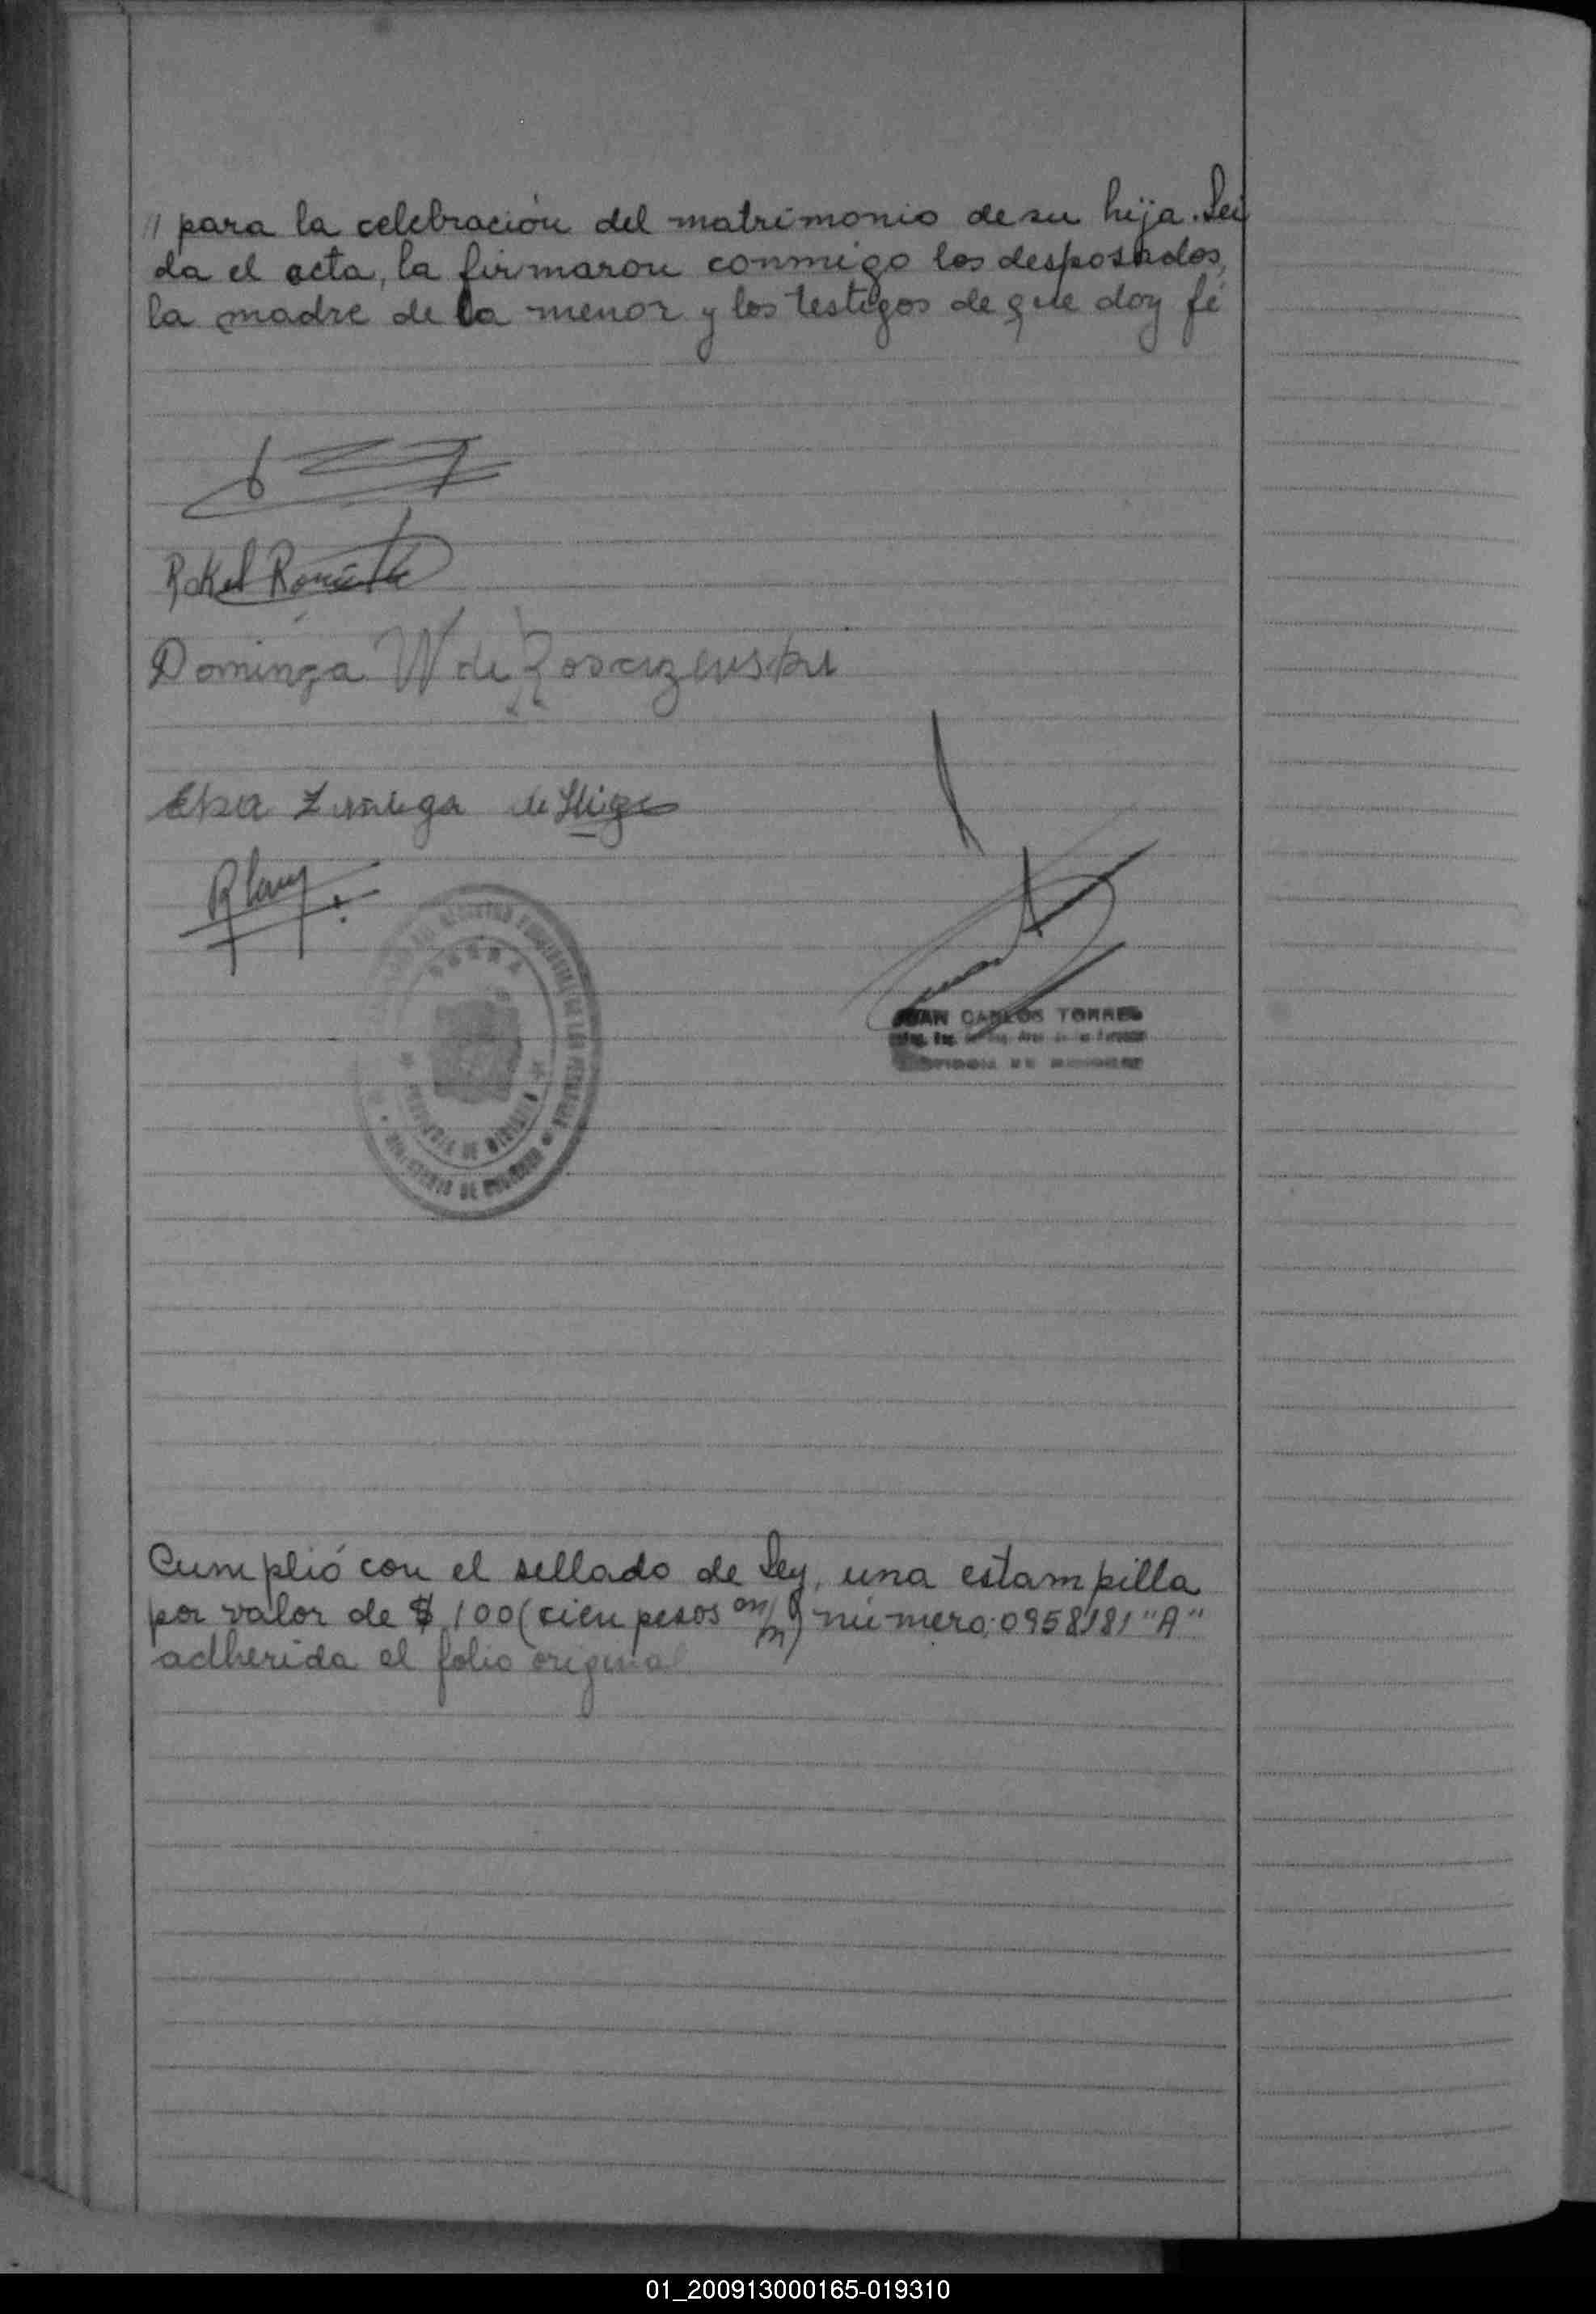 // para la celebración del matrimonio de su hija. Lei
da el acta, la firmaron conmigo los desposados,
la madre de la menor y los testigos de que doy fé
Rakel
Dominga W de
Elsa Zuñiga de
JUAN CARLOS TORRES
PROVINCIA DE
MINISTERIO DE
Cumplió con el sellado de Ley, una estampilla
por valor de $ 100 (cien pesos m/m) número: 0958181 "A"
adherida al folio original
01_200913000165-019310